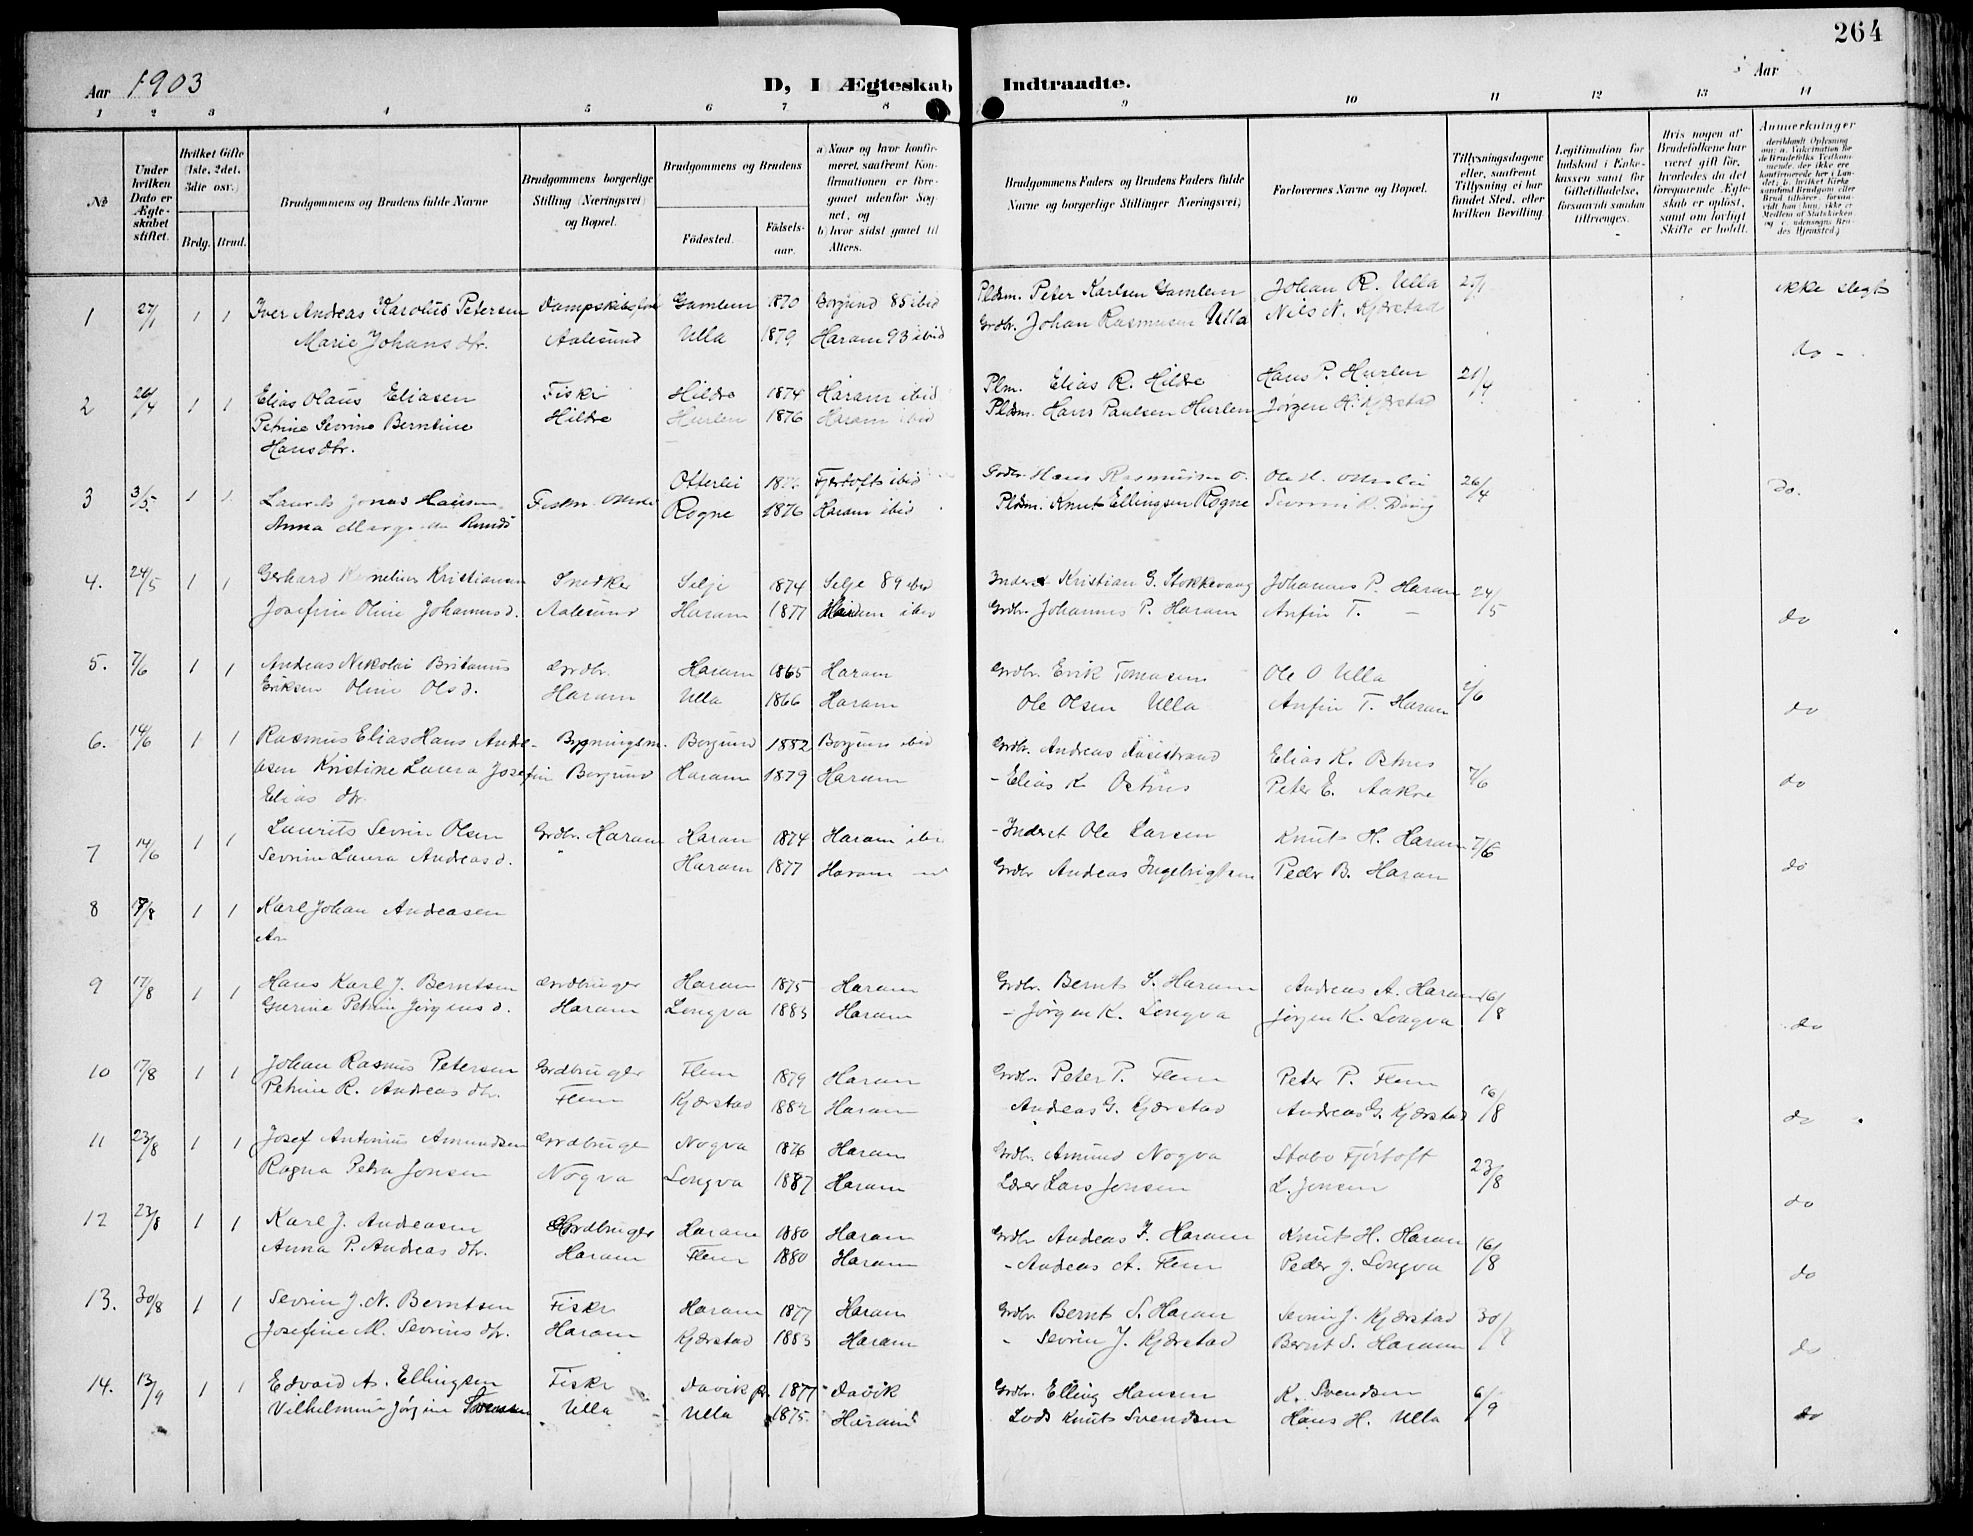 264
Aar 1903
D, I Ægteskab Indtraadte.
Aar
1 2 3 4 5 6 7 8 9 10 11 12 13 14
№
Under hvilken Dato er Ægteskabet stiftet.
Hvilket Gifte (1ste, 2det, 3die osv.)
Brdg. Brud.
Brudgommens og Brudens fulde Navne
Brudgommens borgerlige Stilling (Næringsvei) og Bopæl.
Brudgommens og Brudens
Fødested.
Fødselsaar.
a) Naar og hvor konfirmeret, saafremt Konfirmationen er foregaaet udenfor Sognet, og
b) hvor sidst gaaet til Alters.
Brudgommens Faders og Brudens Faders fulde Navne og borgerlige Stillinger (Næringsvei)
Forlovernes Navne og Bopæl.
Tillysningsdagene eller, saafremt Tillysning ei har fundet Sted, efter hvilken Bevilling.
Legitimation for Indskud i Enkekassen samt for Giftetilladelse, forsaavidt saadan tiltrænges.
Hvis nogen af Brudefolkene har været gift før, hvorledes da det foregaaende Ægteskab er opløst, samt om lovligt Skifte er holdt.
Anmærkninger
1 27/1 1 1 Iver Andreas Karolus Petersen Gamlem 1870 Borgund 85 ibid Pldsm. Peter Karlsen Gamlem Johan R. Ulla 25/1 ikke slegt
Marie Johans dtr. Aalesund Ulla 1879 Haram 93 ibid Grdbr. Johan Rasmusen Ulla Nils N. Kjærstad
do -
2 26/4 1 1 Elias Olaus Eliasen Fisker Hildre 1874 Haram ibid Plm. Elias R. Hildre Hans P. Hurlen 21/4
Petrine Sevrine Berntine Hildre Hurlen 1876 Haram ibid Pldsm. Hans Paulsen Hurlen Jørgen H. Kjærstad
Hans dtr.
3 3/5 1 1 Laurits Jonas Hansen Fisker Otterlei Fjørtoft ibid Grdbr. Hans Rasmusen O. Ole H. Otterlei 26/4 do.
Anna Rogne 1876 Haram ibid Pldsm. Knut Ellingsen Rogne
4. 24/5 1 1 Gerhard Kornelius Kristiansen Snedker Selje 1874 Selje 89 ibid Inderst Kristian G. Stokkevaag Johannes P. Haram 24/5
Josefine Oline Johannesd. Aalesund Haram 1877 Haram ibid Grdbr. Johannes P. Haram Anfin T. - do
5. 7/6 1 1 Andreas Nikolai Britanus Grdbr. Haram 1865 Haram Grdbr. Erik Tomasen Ole O Ulla 7/6
Eriksen Oline Olsd. Haram Ulla 1866 Haram Ole Olsen Ulla Anfin T. Haram do
6. 14/6 1 1 Rasmus Elias Hans Andre- Bygningsm. Borgund 1882 Borgund ibid Grdbr. Andreas Elias K. Østnes
asen Kristine Laura Josefin Borgund Haram 1879 Haram - Elias K. Østnes Peter E. Aakre 7/6 do
Elias dtr.
7 14/6 1 1 Laurits Sevrin Olsen Grdbr. Haram Haram 1874 Haram ibid - Inderst Ole Larsen Knut H. Haram 7/6
Sevrine Laura Andreasd. Haram 1877 Haram Grdbr Andreas Ingebrigtsen Peder B. Haram do
8 1 1 Karl Johan Andreasen
An
9 17/8 1 1 Hans Karl J. Berntsen Grdbruger Haram 1875 Haram Grdbr. Bernt S. Haram Andreas A. Haram 16/8
Gurine Petrine Jørgensd. Haram Longva 1883 Haram - Jørgen K. Longva Jørgen K. Longva do
10 17/8 1 1 Johan Rasmus Petersen Grdbruger Flem 1879 Haram Grdbr. Peter P. Flem Peter P. Flem 16/8
Petrine R. Andreas dtr. Flem Kjærstad 1882 Haram Andreas G. Kjærstad Andreas G. Kjærstad do
11 23/8 1 1 Josef Antinius Amundsen Grdbruger Nogva 1876 Haram Grdbr. Amund Nogva Fjørtoft 23/8
Ragna Petra Jonsen Nogva Longva 1887 Haram Lærer Lars Jonsen L. Jonsen do
12 23/8 1 1 Karl J. Andreasen Grdbruger Haram 1880 Haram Grdbr Andreas J. Haram Knut H. Haram 16/8
Anna P. Andreas dtr. Haram Flem 1880 Haram - Andreas A. Flem Peder J. Longva do
13. 30/8 1 1 Sevrin J. N. Berntsen Fisker Haram 1877 Haram Grdbr. Bernt S. Haram Sevrin J. Kjærstad
Josefine M. Sevrins dtr. Haram Kjærstad 1883 Haram - Sevrin J. Kjærstad Bernt S. Haram do
14. 13/9 1 1 Edvard A. Ellingsen Fisker Davik 1877 Davik Grdbr. Elling Hansen K. Svendsen 6/9
Vilhelmine Jørgine Svensen Ulla Ulla 1875 Haram Lods Knut Svendsen Hans H. Ulla do